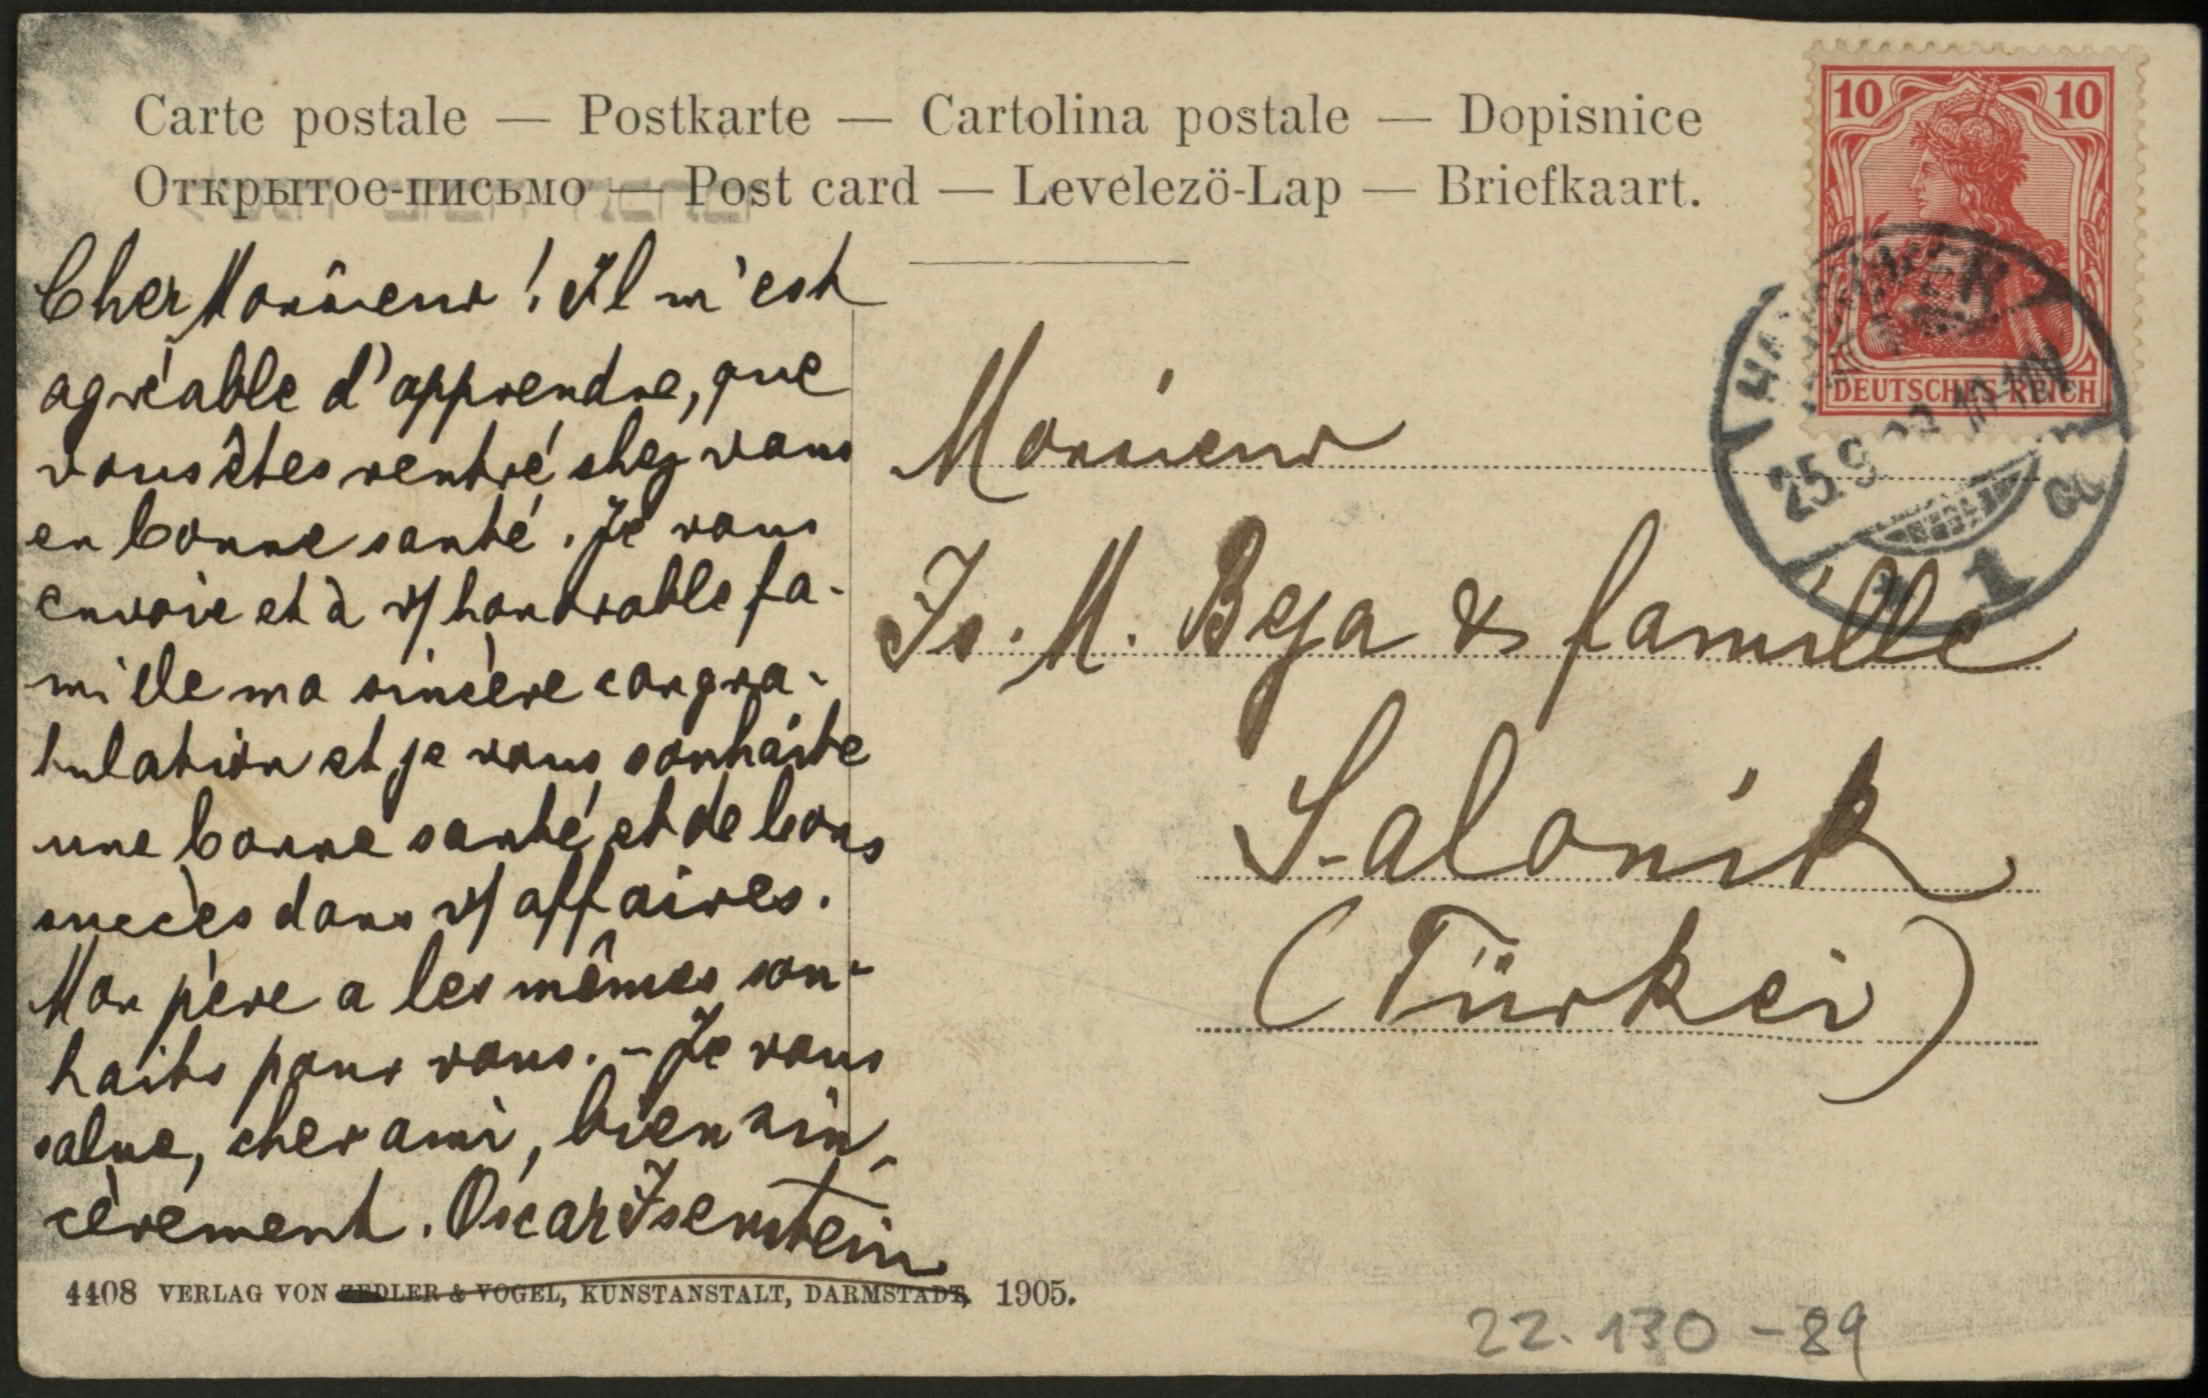 Carte postale — Postkarte — Cartolina postale — Dopisnice
Открытое-письмо — Post card — Levelezö-Lap — Briefkaart.
10 10
DEUTSCHES REICH
25.9
1
Cher Monsieur ! Il m'est
agréable d'apprendre, que
vous êtes rentré chez vous
en bonne santé. Je vous
envoie et à v/ honorable fa-
mille ma sincère congra-
tulation et je vous souhaite
une bonne santé et de bons
succès dans v/ affaires.
Mon père a les mêmes sou-
haits pour vous. – Je vous
salue, cher ami, bien sin-
cèrement. Oscar Isenstein
Monsieur
Is. M. Beja & famille
Salonik
(Türkei)
4408 VERLAG VON ZEDLER & VOGEL, KUNSTANSTALT, DARMSTADT, 1905.
22.130-89